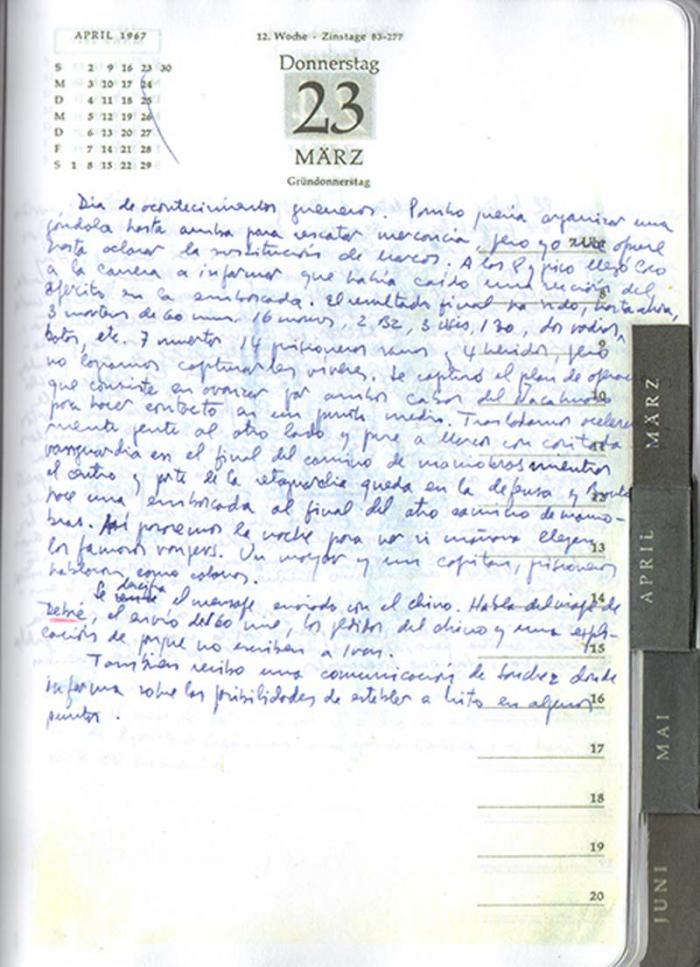 APRIL 1967
S 2 9 16 23 30
M 3 10 17 24
D 4 11 18 25
M 5 12 19 26
D 6 13 20 27
F 7 14 21 28
S 1 8 15 22 29
12. Woche · Zinstage 83-277
Donnerstag
23
MÄRZ
Gründonnerstag
Dia de acontecimientos guerreros. Pombo quería organizar una
góndola hasta arriba para rescatar mercancía, pero yo me opuse
hasta aclarar la sustitución de Marcos. A las 8 y pico llegó Coco
a la carrera a informar que había caído una sección del
ejército en la emboscada. El resultado final ha sido, hasta ahora,
3 morteros de 60 mm. 16 mausers, 2 BZ, 3 Usis, 1 30, dos radios,
botas, etc. 7 muertos 14 prisioneros sanos y 4 heridos, pero
no logramos capturarles víveres. Se capturó el plan de operaciones
que consiste en avanzar por ambos cabos del Ñacahuasu
para hacer contacto en un punto medio. Trasladamos acelerada-
mente gente al otro lado y puse a Marcos con casi toda
vanguardia en el final del camino de maniobras mientras
el centro y parte de la retaguardia queda en la defensa y Braulio
hace una emboscada al final del otro camino de manio-
bras. Así pasaremos la noche para ver si mañana llegan
los famosos rangers. Un mayor y un capitan, prisioneros
hablaron como cotorras.
Se descifra el mensaje enviado con el chino. Habla del viaje de
Debré, el envío de $60 mil, los pedidos del chino y una expli-
cación de porque no escriben a Ivan.
Tambien recibo una comunicación de Sanchez donde
informa sobre las posibilidades de establer a Mito en algunos
puntos.
8
9
10
11
12
13
14
15
16
17
18
19
20
MÄRZ
APRIL
MAI
JUNI